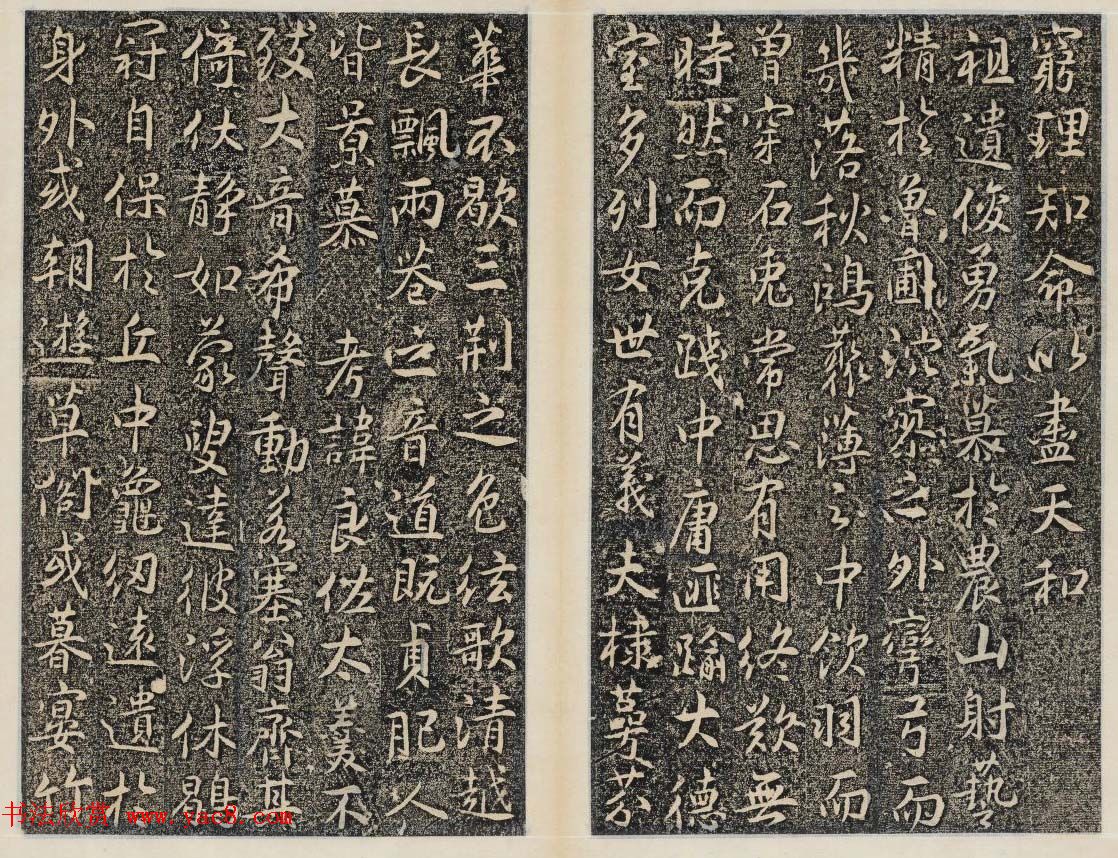 窮理知命以盡天和
祖遺俊勇氣慕於農山射藝
精於魯圃濛密之外彎弓而
幾落秋鴻蘋薄之中飲羽而
曾穿石兔常思有用終歎無
時然而克踐中庸匪踰大德
室多列女世有義夫棣萼芬
華不歇三荊之色弦歌清越
長飄兩卷之音道既貞肥人
皆景慕 考諱良佐太羹不
致大音希聲動若塞翁齊其
倚伏靜如蒙叟達彼浮休鶡
冠自保於丘中龜紉遠遺於
身外或朝遊草閣或暮宴竹
书法欣赏 www.yac8.com